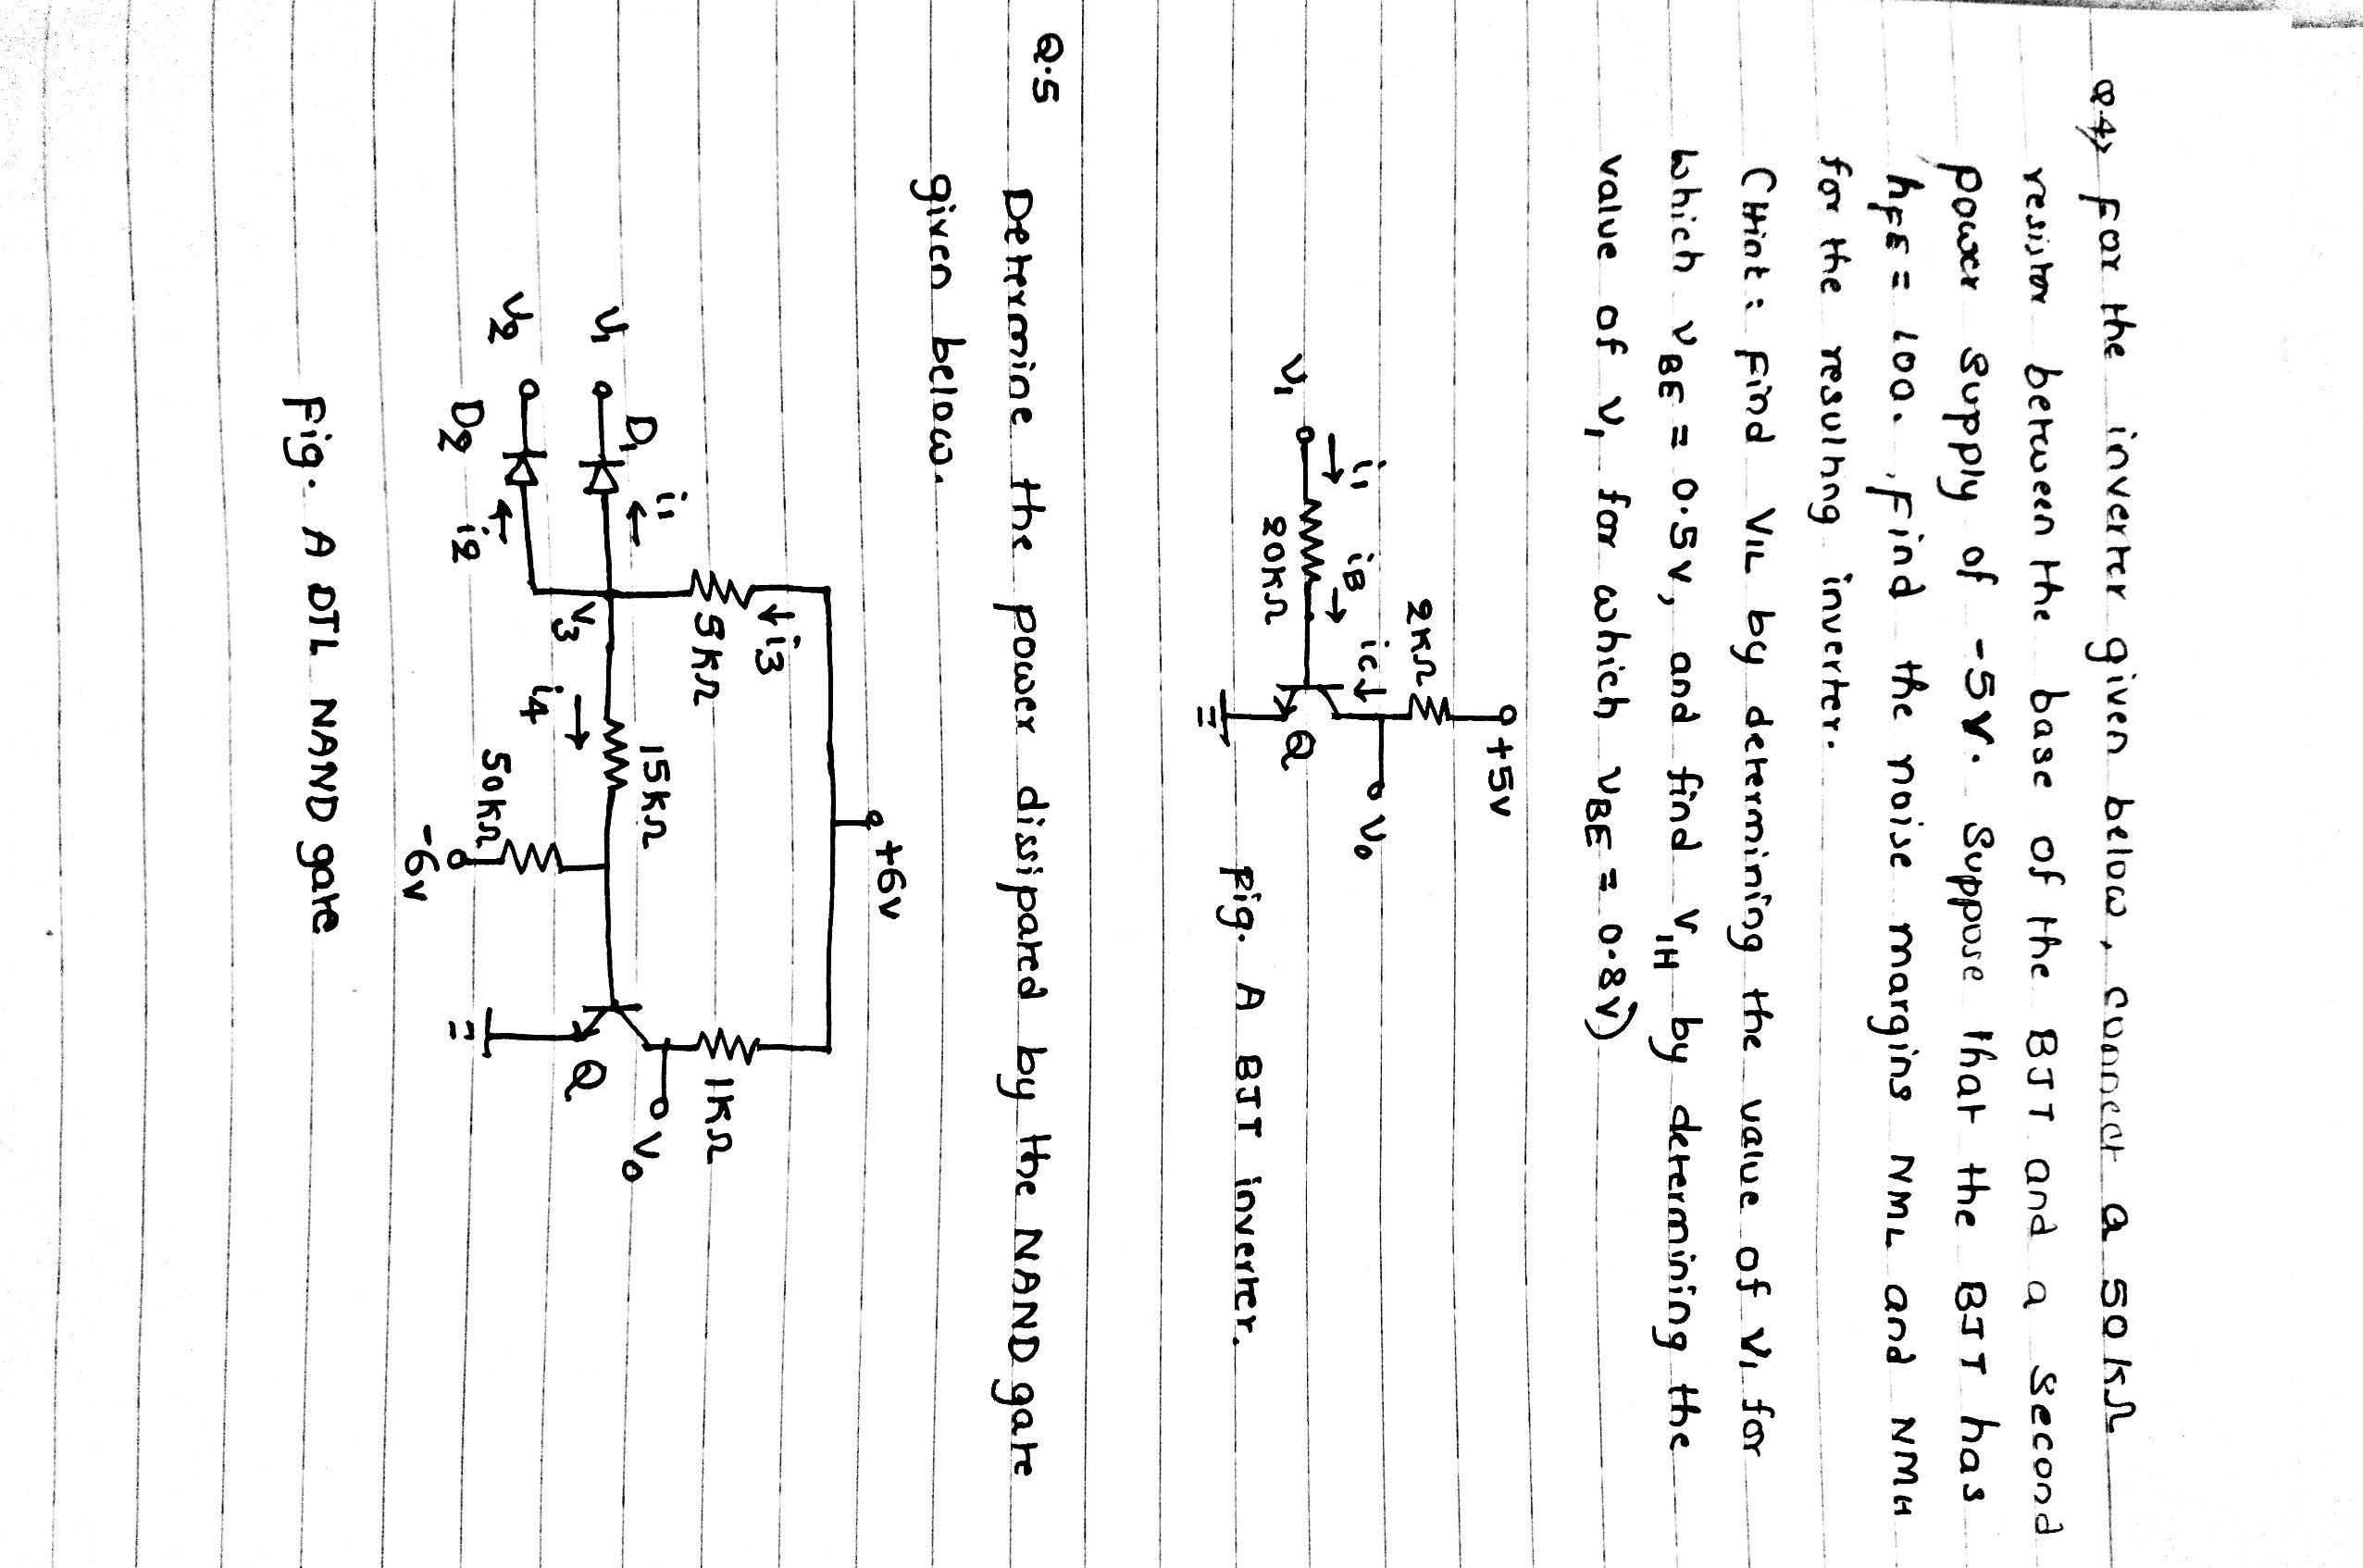 Q.4> For the inverter given below, connect a 50 kΩ
resistor between the base of the BJT and a second
power supply of -5V. Suppose that the BJT has
hFE = 100. Find the noise margins NML and NMH
for the resulting inverter.
(Hint: Find VIL by determining the value of V1 for
which VBE = 0.5V, and find VIH by determining the
value of V1 for which VBE = 0.8V)
+5V
2KΩ
i1 iB ic↓ V0
V1 20KΩ Q
Fig. A BJT inverter.
Q.5 Determine the power dissipated by the NAND gate
given below.
+6V
↓i3
5KΩ 1KΩ
i1 15KΩ
V1 D1 V0
V3 i4 Q
V2 D2 i2 50KΩ
-6V
Fig. A DTL NAND gate